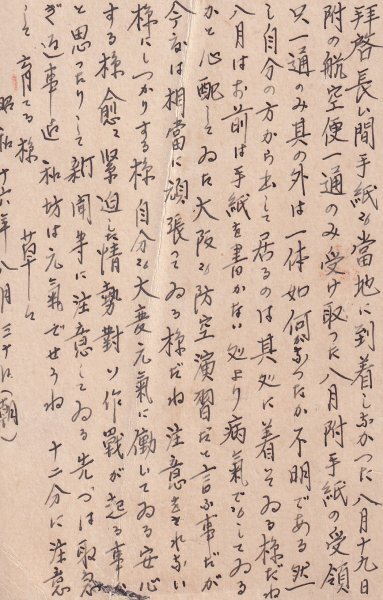 拝啓長い間手紙が當地に到着しなかった八月十九日
附の航空便一通のみ受け取った八月附手紙の受領
只一通のみ其の外は一体如何なったか不明である然
し自分の方から出して居るのは其処に着いてゐる様だね
八月はお前は手紙を書かない処より病氣でもしてゐる
かと心配してゐた大阪が防空演習だと言ふ事だが
今度は相當に頑張ってゐる様だね注意をされない
様にしっかりする様自分が大変元氣に働いてゐる安心
する様愈々緊迫した情勢對ソ作戰が起る事か
と思ったりして新聞等に注意してゐる先づは取急
ぎ近事迄 和坊は元氣でせうね 十二分に注意
して育てる様 草々
昭和十六年八月三十日(朝)